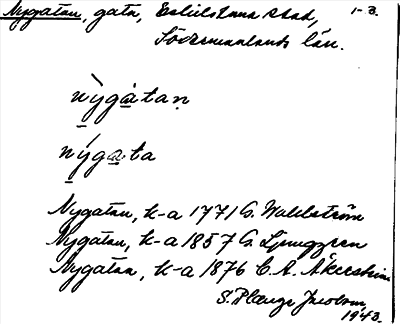 Nygatan, gata, Eskilstuna stad, 1-3.
Södermanlands län.
nỳgátan
nýgata
Nygatan, k-a 1771 G. Wahlström
Nygatan, k-a 1857 G. Ljunggren
Nygatan, k-a 1876 C. A. Åkershim
S. Plauge Jacobson,
1943.